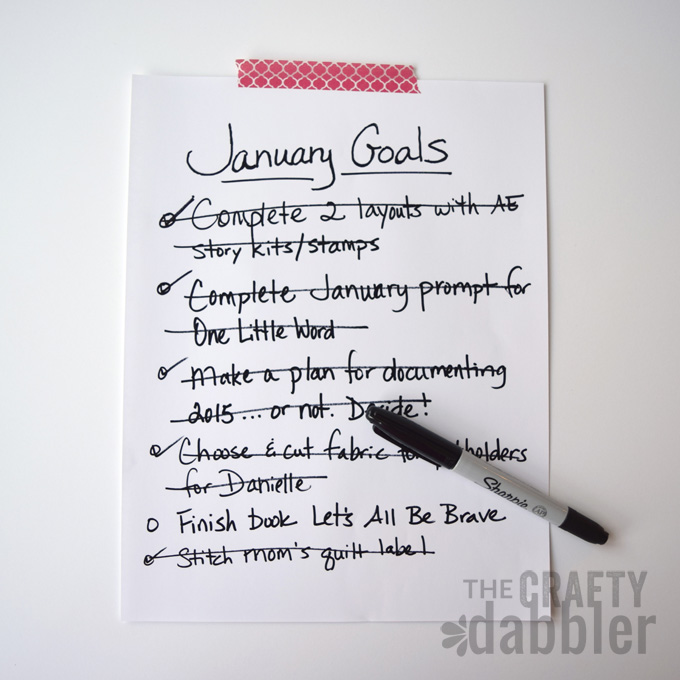 January Goals
Complete 2 layouts with AE
story kits/stamps
Complete January prompt for
One Little Word
Make a plan for documenting
2015... or not. Decide!
Choose & cut fabric for potholders
for Danielle
Finish book Let's All Be Brave
Stitch mom's quilt label
Sharpie
THE CRAFTY
dabbler